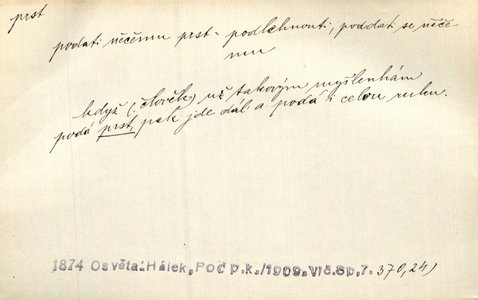 prst
podati něčemu prst = podlehnouti, poddati se něče-
mu
když (: člověk) už takovým myšlenkám
podá prst, pak jde dál a podá i celou ruku.
1874 Osvěta: Hálek, Pod p.k./1909.Vlč.Sp,7. 370,24)